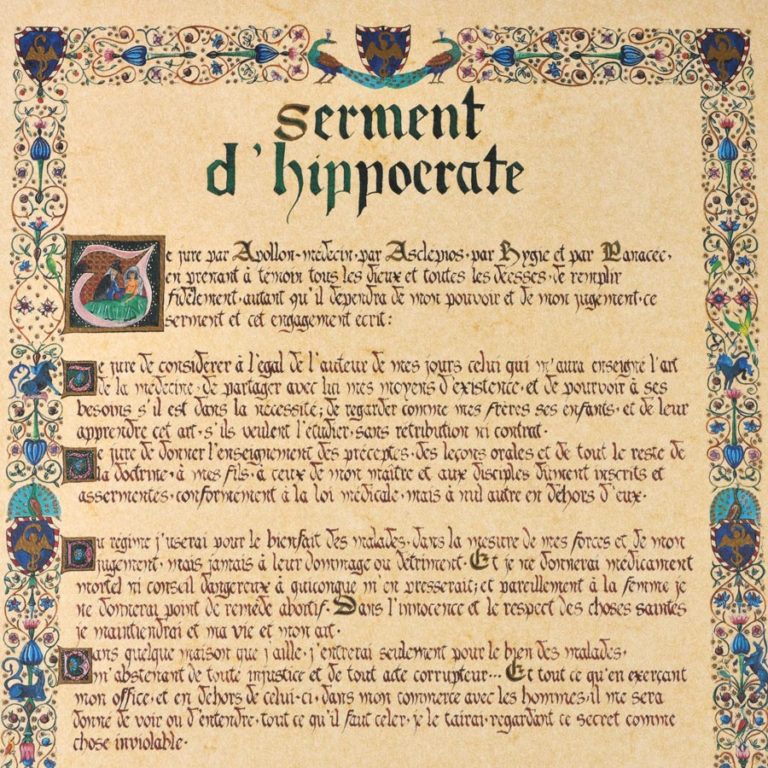 Serment
d'hippocrate
Je jure par Apollon-médecin, par Asclépios, par Hygie et par Panacée,
en prenant à témoin tous les dieux et toutes les déesses, de remplir
fidèlement, autant qu'il dépendra de mon pouvoir et de mon jugement, ce
serment et cet engagement écrit:
Je jure de considérer à l'égal de l'auteur de mes jours celui qui m'aura enseigné l'art
de la médecine, de partager avec lui mes moyens d'existence, et de pourvoir à ses
besoins s'il est dans la nécessité; de regarder comme mes frères ses enfants, et de leur
apprendre cet art, s'ils veulent l'étudier, sans rétribution ni contrat.
Je jure de donner l'enseignement des préceptes, des leçons orales et de tout le reste de
la doctrine, à mes fils, à ceux de mon maître et aux disciples dûment inscrits et
assermentés, conformément à la loi médicale, mais à nul autre en dehors d'eux.
Du régime j'userai pour le bienfait des malades, dans la mesure de mes forces et de mon
jugement, mais jamais à leur dommage ou détriment. Et je ne donnerai médicament
mortel ni conseil dangereux à quiconque m'en presserait; et pareillement à la femme je
ne donnerai point de remède abortif. Dans l'innocence et le respect des choses saintes
je maintiendrai et ma vie et mon art.
Dans quelque maison que j'aille, j'entrerai seulement pour le bien des malades,
m'abstenant de toute injustice et de tout acte corrupteur... Et tout ce qu'en exerçant
mon office, et en dehors de celui-ci, dans mon commerce avec les hommes, il me sera
donné de voir ou d'entendre, tout ce qu'il faut celer, je le tairai, regardant ce secret comme
chose inviolable.